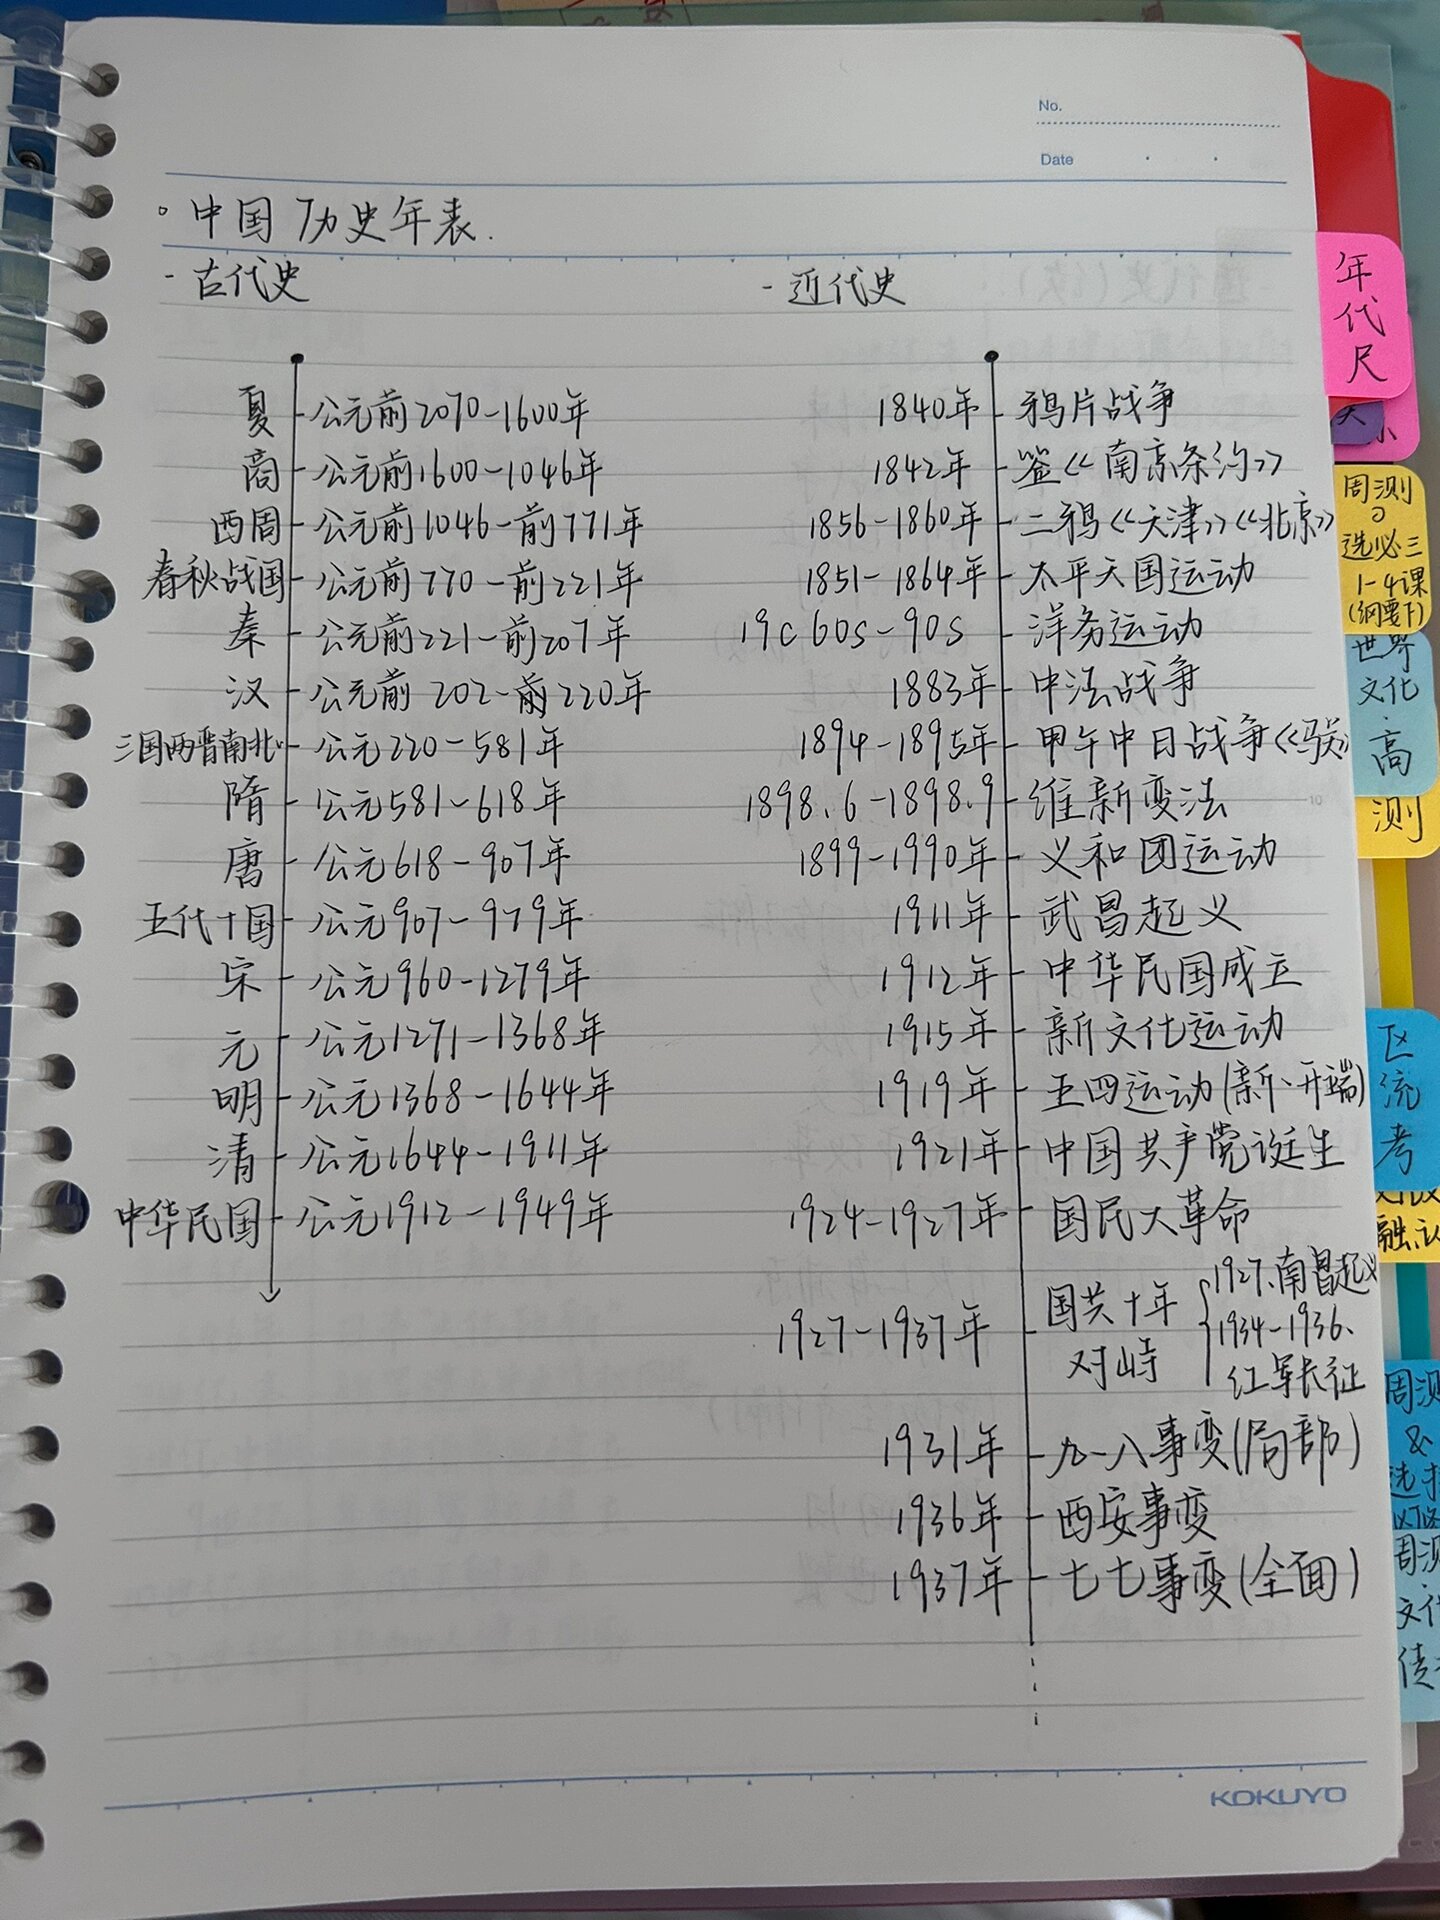 No.
Date
。中国历史年表.
- 古代史
夏 公元前2070-1600年
商 公元前1600-1046年
西周 公元前1046-前771年
春秋战国 公元前770-前221年
秦 公元前221-前207年
汉 公元前202-前220年
三国两晋南北 公元220-581年
隋 公元581-618年
唐 公元618-907年
五代十国 公元907-979年
宋 公元960-1279年
元 公元1271-1368年
明 公元1368-1644年
清 公元1644-1911年
中华民国 公元1912-1949年
- 近代史
1840年 鸦片战争
1842年 签《南京条约》
1856-1860年 二鸦《天津》《北京》
1851-1864年 太平天国运动
19c 60s-90s 洋务运动
1883年 中法战争
1894-1895年 甲午中日战争《马关》
1898.6-1898.9 维新变法
1899-1990年 义和团运动
1911年 武昌起义
1912年 中华民国成立
1915年 新文化运动
1919年 五四运动(新、开端)
1921年 中国共产党诞生
1924-1927年 国民大革命
1927-1937年 国共十年对峙
1927.南昌起义
1934-1936.
红军长征
1931年 九一八事变(局部)
1936年 西安事变
1937年 七七事变(全面)
KOKUYO
年代尺
周测
选必三
1-4课
(纲要下)
世界
文化
高
测
区
流
考
周测
&
周测